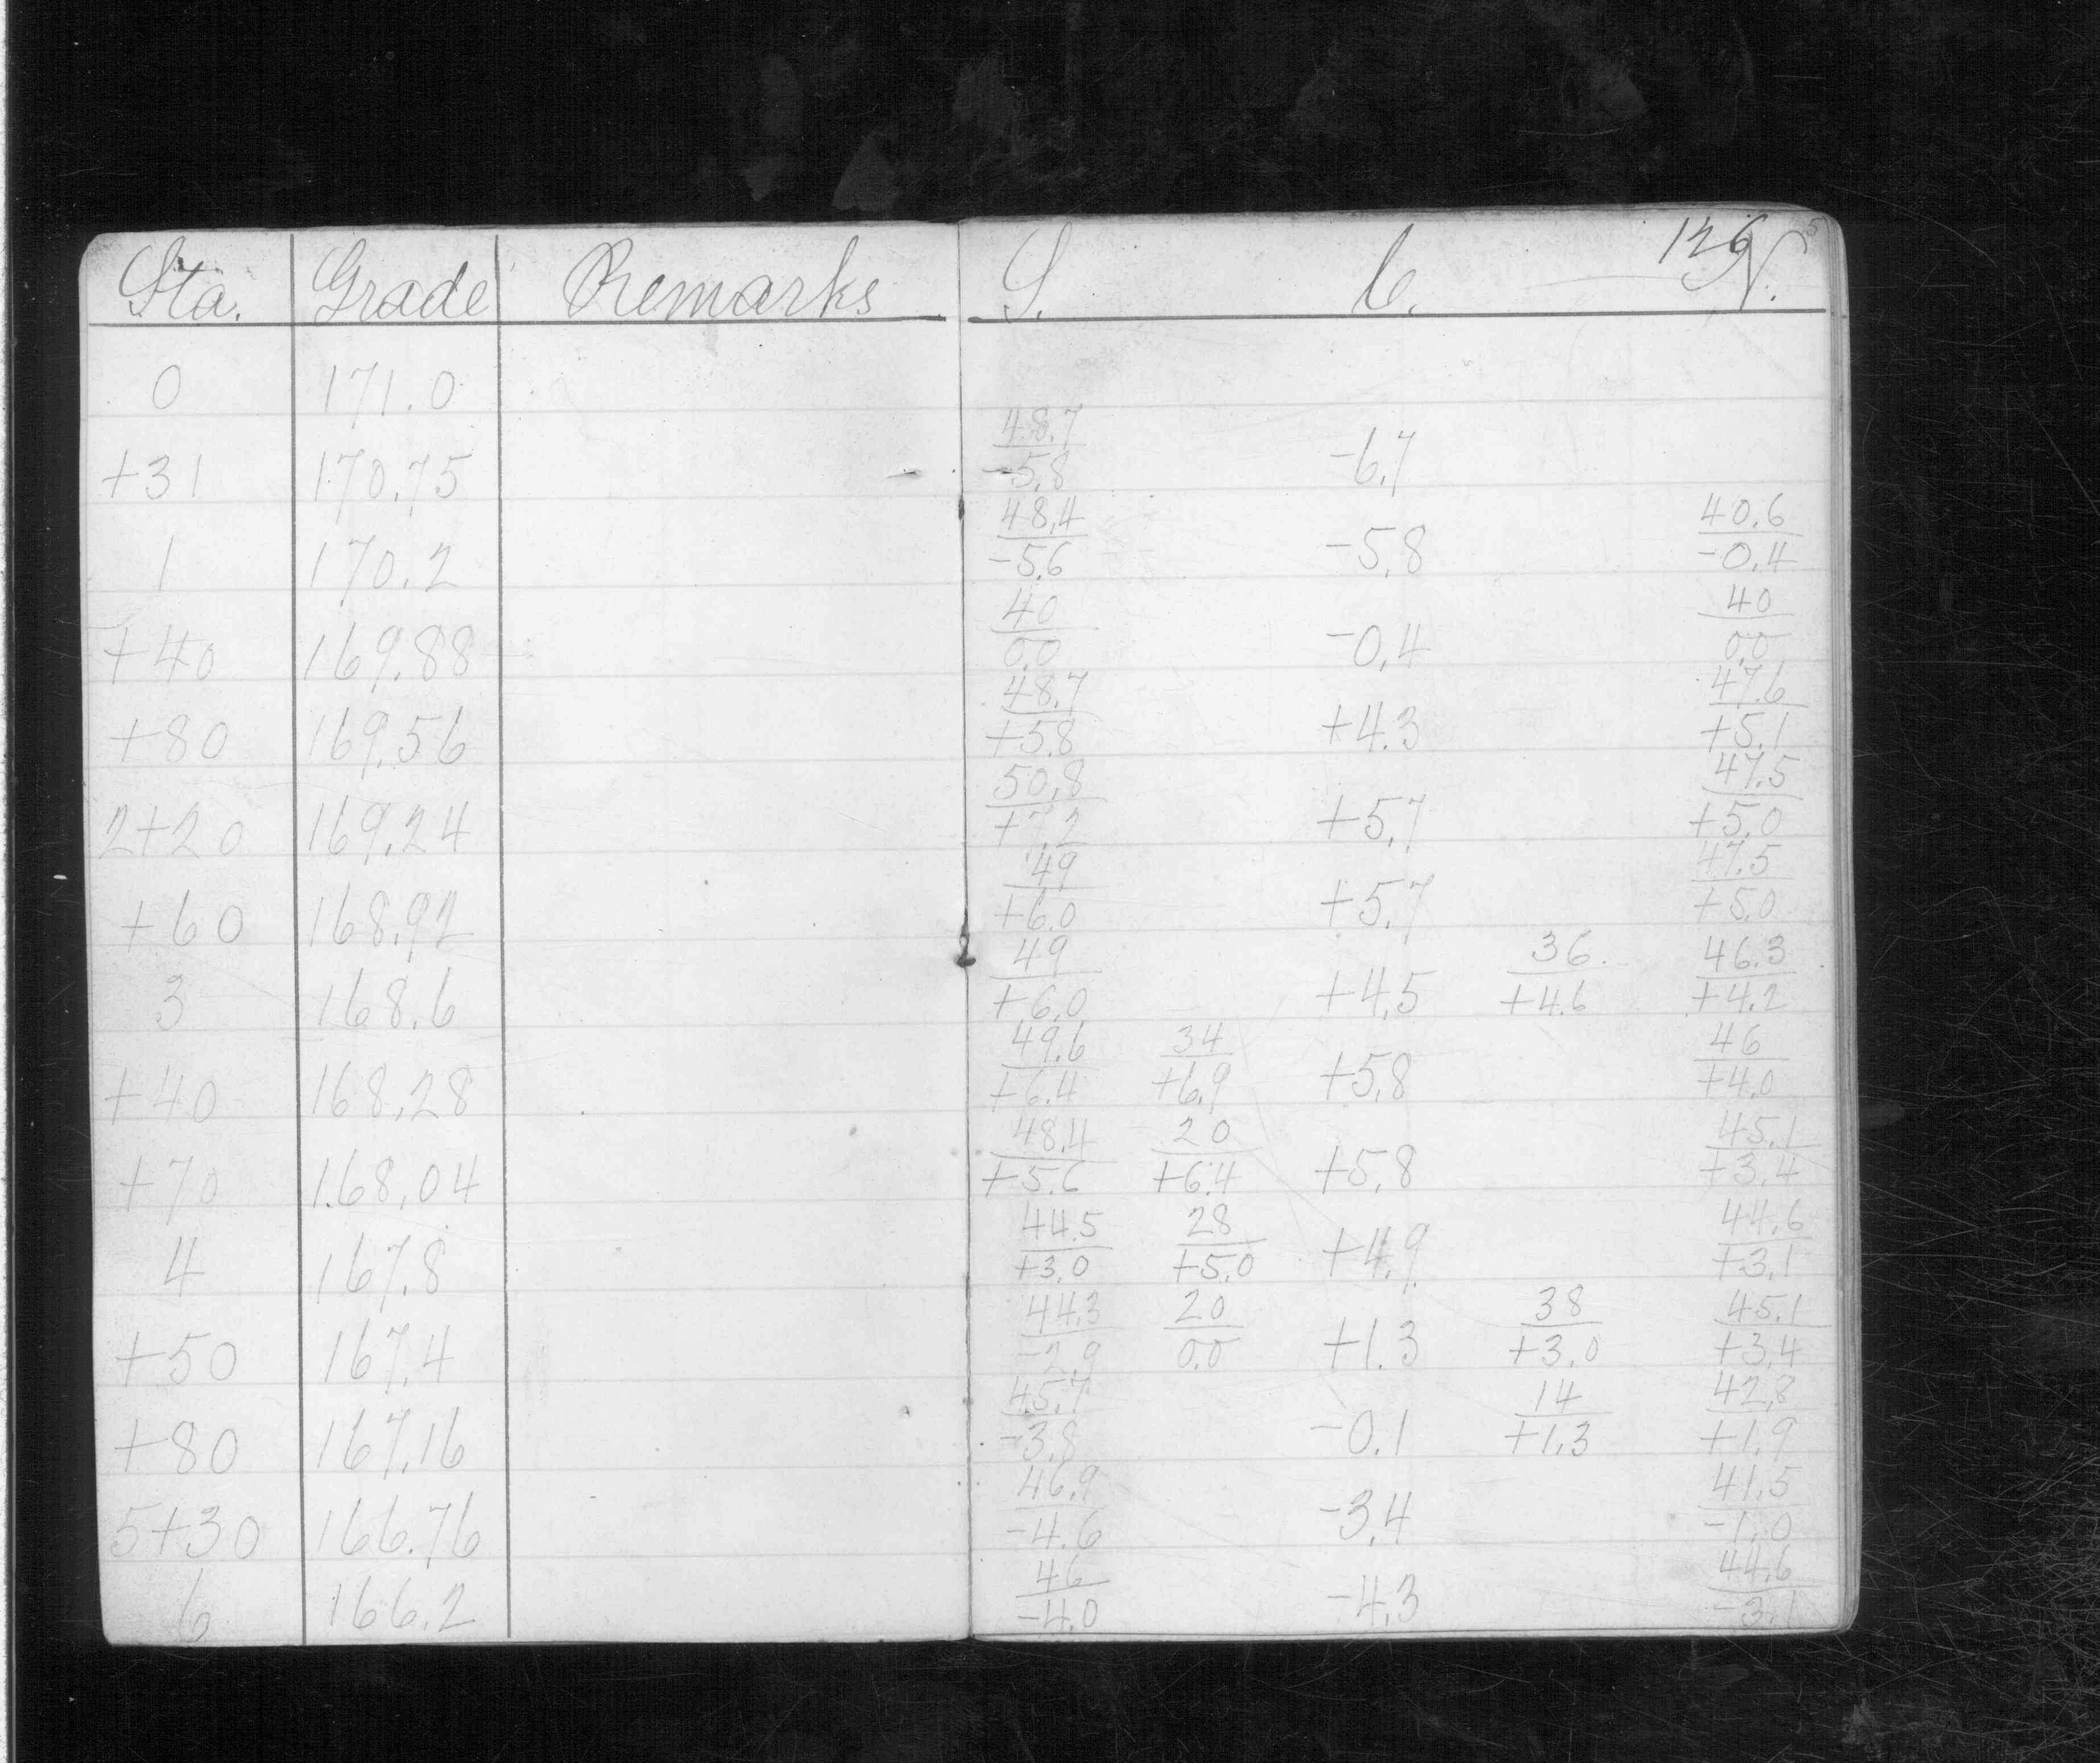 Sta. Grade Remarks S. C. N. 126
0 171.0
48.7
+31 170.75 -5.8 -6.7
48.4 40.6
1 170.2 -5.6 -5.8 -0.4
40 40
+40 169.88 0.0 -0.4 0.0
48.7 47.6
+80 169.56 +5.8 +4.3 +5.1
50.8 47.5
2+20 169.24 +7.2 +5.7 +5.0
49 47.5
+60 168.92 +6.0 +5.7 +5.0
49 36 46.3
3 168.6 +6.0 +4.5 +4.6 +4.2
49.6 34 46
+40 168.28 +6.4 +6.9 +5.8 +4.0
48.4 20 45.1
+70 168.04 +5.6 +6.4 +5.8 +3.4
44.5 28 44.6
4 167.8 +3.0 +5.0 +4.9 +3.1
44.3 20 38 45.1
+50 167.4 -2.9 0.0 +1.3 +3.0 +3.4
45.7 14 42.8
+80 167.16 -3.8 -0.1 +1.3 +1.9
46.9 41.5
5+30 166.76 -4.6 -3.4 -1.0
46 44.6
6 166.2 -4.0 -4.3 -3.1